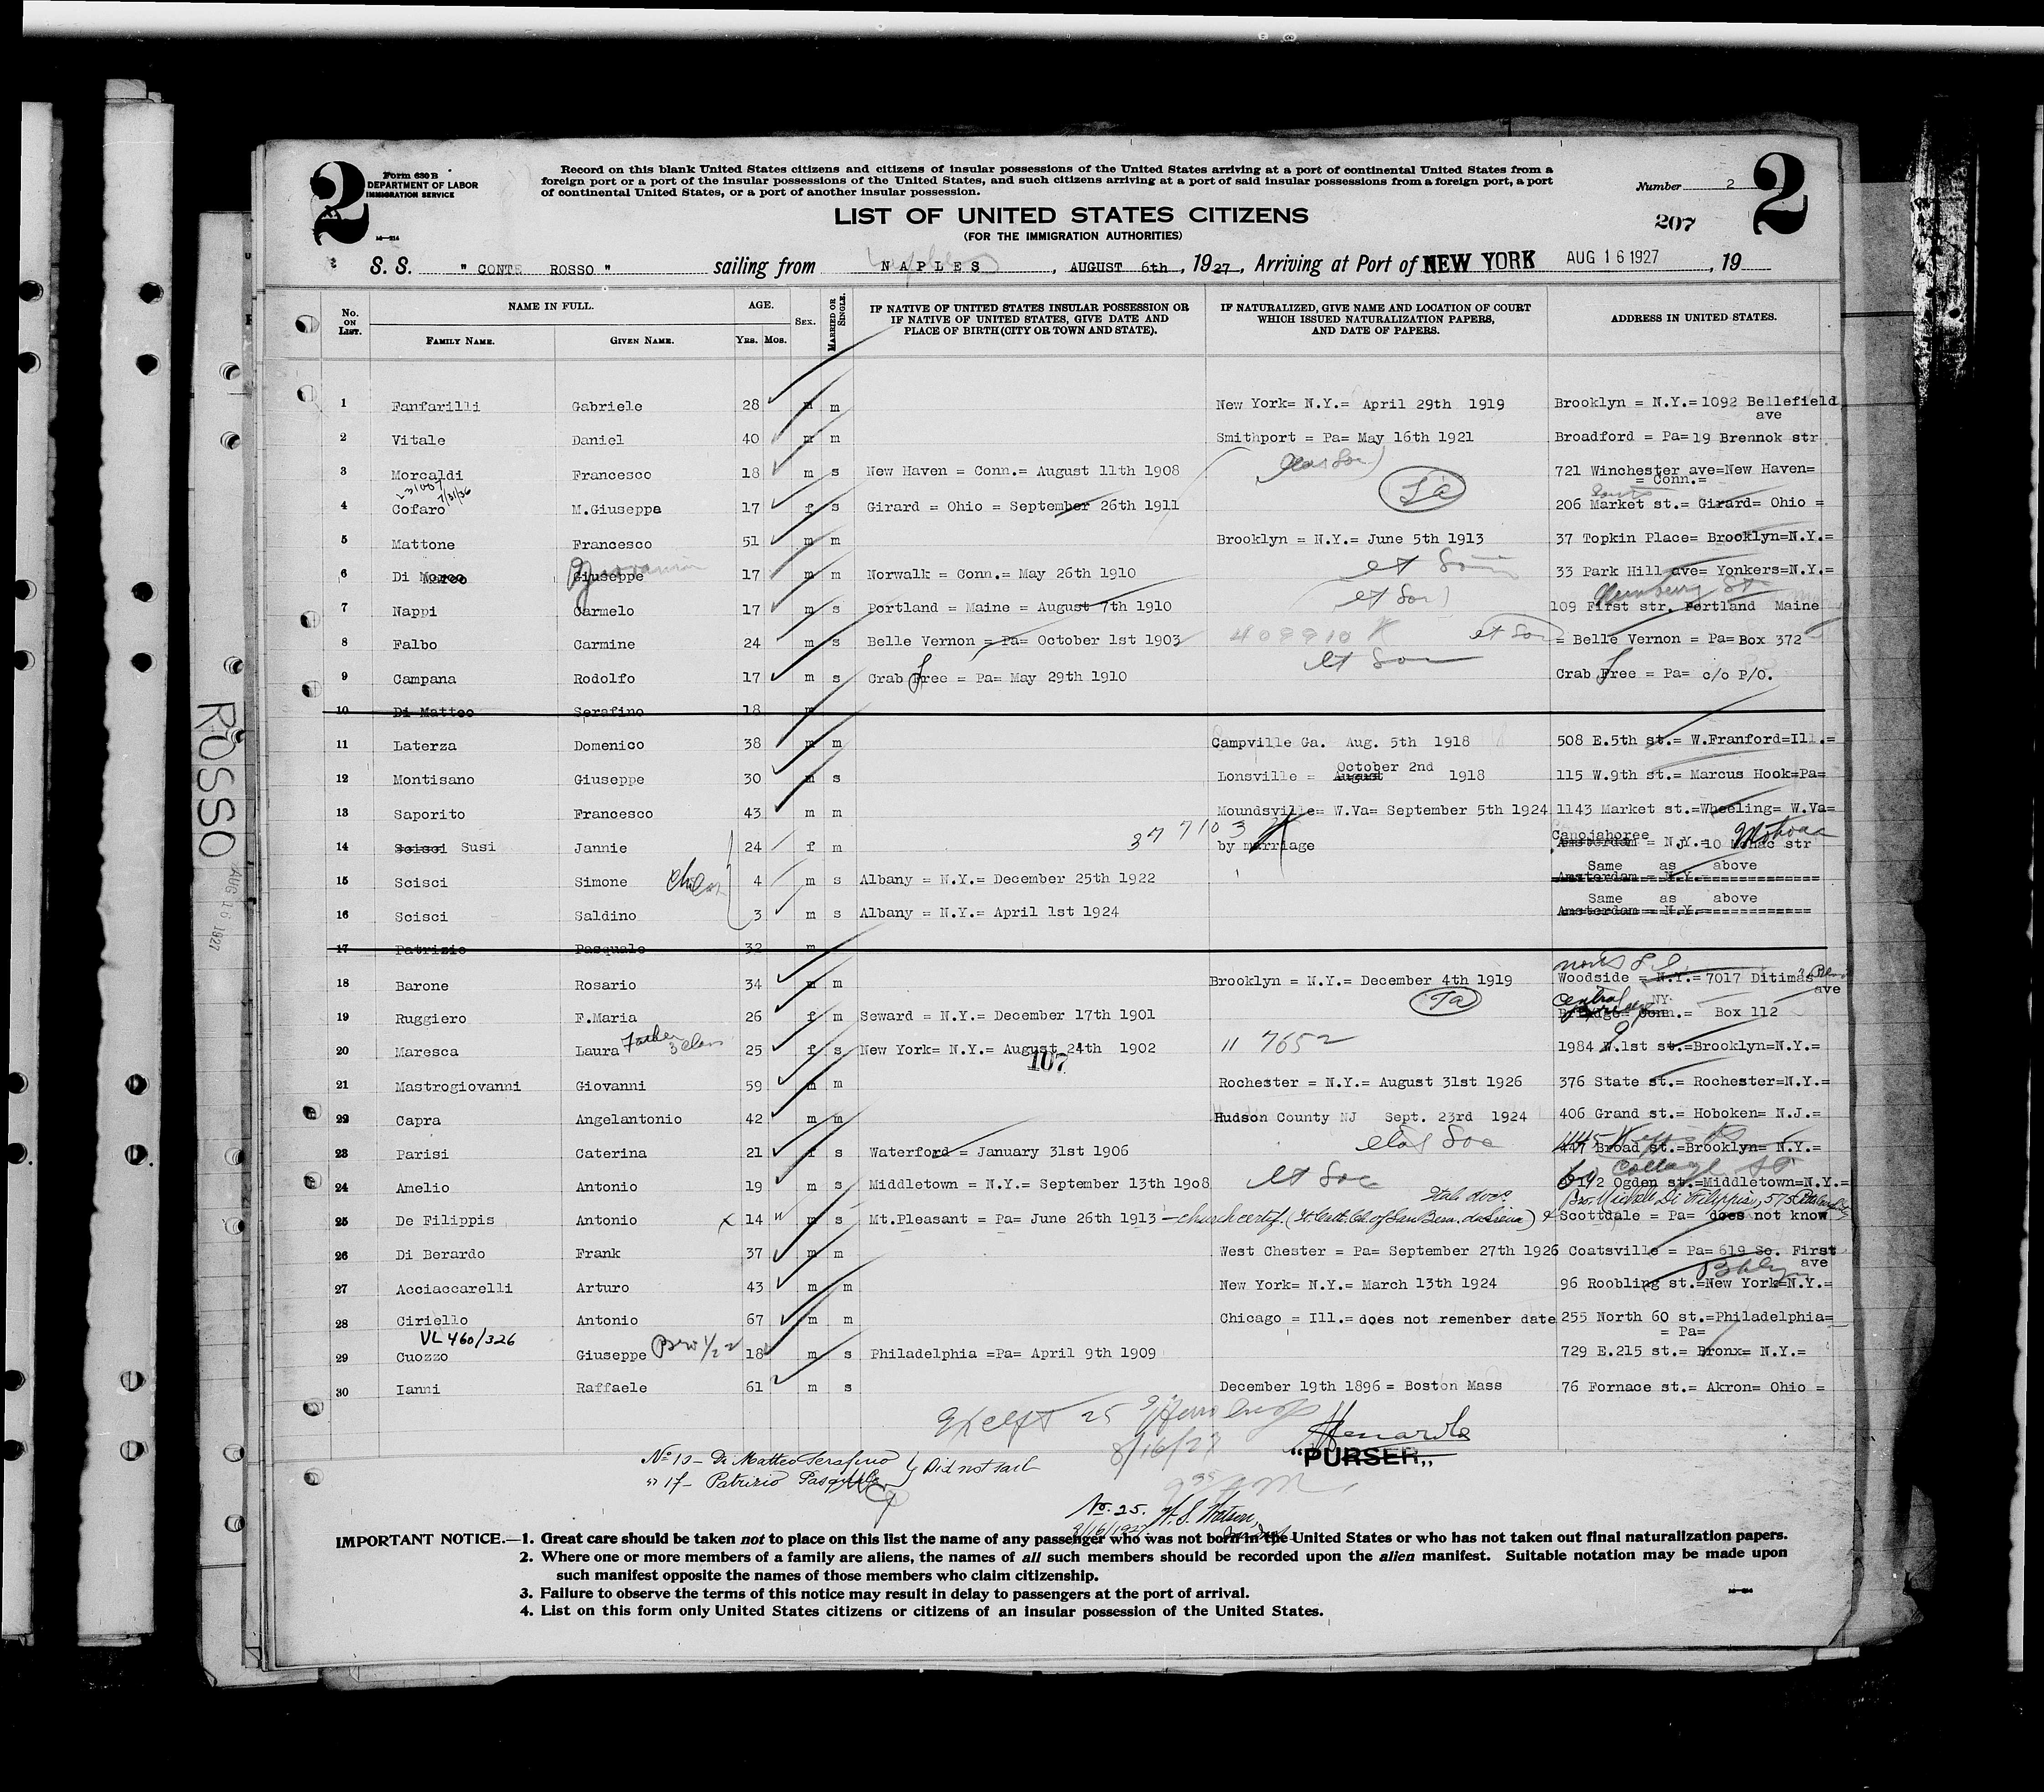 2
Form 630 B
DEPARTMENT OF LABOR
IMMIGRATION SERVICE
Record on this blank United States citizens and citizens of insular possessions of the United States arriving at a port of continental United States from a
foreign port or a port of the insular possessions of the United States, and such citizens arriving at a port of said insular possessions from a foreign port, a port
of continental United States, or a port of another insular possession.
Number 2
2
LIST OF UNITED STATES CITIZENS
(FOR THE IMMIGRATION AUTHORITIES)
207
S. S. " CONTE ROSSO " sailing from NAPLES, AUGUST 6th, 1927, Arriving at Port of NEW YORK AUG 16 1927, 19
No. ON LIST. NAME IN FULL. FAMILY NAME. GIVEN NAME. AGE. YRS. MOS. SEX. MARRIED OR SINGLE. IF NATIVE OF UNITED STATES INSULAR POSSESSION OR IF NATIVE OF UNITED STATES, GIVE DATE AND PLACE OF BIRTH (CITY OR TOWN AND STATE). IF NATURALIZED, GIVE NAME AND LOCATION OF COURT WHICH ISSUED NATURALIZATION PAPERS, AND DATE OF PAPERS. ADDRESS IN UNITED STATES.
1 Fanfarilli Gabriele 28 m m New York= N.Y.= April 29th 1919 Brooklyn = N.Y.= 1092 Bellefield
ave
2 Vitale Daniel 40 m m Smithport = Pa= May 16th 1921 Broadford = Pa= 19 Brennok str
3 Morcaldi Francesco 18 m s New Haven = Conn.= August 11th 1908 721 Winchester ave=New Haven=
= Conn.=
7/31/36
4 Cofaro M.Giuseppa 17 f s Girard = Ohio = September 26th 1911 206 Market st.= Girard= Ohio =
5 Mattone Francesco 51 m m Brooklyn = N.Y.= June 5th 1913 37 Topkin Place= Brooklyn=N.Y.=
Giovanni
6 Di Marco Giuseppe 17 m m Norwalk = Conn.= May 26th 1910 33 Park Hill ave= Yonkers=N.Y.=
7 Nappi Carmelo 17 m s Portland = Maine = August 7th 1910 109 First str. Portland Maine
8 Falbo Carmine 24 m s Belle Vernon = Pa= October 1st 1903 409910 = Belle Vernon = Pa= Box 372
9 Campana Rodolfo 17 m s Crab Free = Pa= May 29th 1910 Crab Free = Pa= c/o P/O.
10 Di Matteo Serafino 18 m
11 Laterza Domenico 38 m m Campville Ga. Aug. 5th 1918 508 E.5th st.= W.Franford=Ill.=
October 2nd
12 Montisano Giuseppe 30 m s Lonsville = August 1918 115 W.9th st.= Marcus Hook=Pa=
13 Saporito Francesco 43 m m Moundsville= W.Va= September 5th 1924 1143 Market st.=Wheeling= W.Va=
377103
Canojahoree
14 Scisci Susi Jannie 24 f m by marriage Amsterdam = N.Y.=10 Mohac str
Same as above
15 Scisci Simone 4 m s Albany = N.Y.= December 25th 1922 Amsterdam = N.Y.
Same as above
16 Scisci Saldino 3 m s Albany = N.Y.= April 1st 1924 Amsterdam = N.Y.
17 Patrizio Pasquale 32 m
18 Barone Rosario 34 m m Brooklyn = N.Y.= December 4th 1919 Woodside = N.Y.= 7017 Ditimas
ave
Central
NY.
19 Ruggiero F.Maria 26 f m Seward = N.Y.= December 17th 1901 Bridge= Conn.= Box 112
Father
20 Maresca Laura 25 f s New York= N.Y.= August 24th 1902 11 7652 1984 W.1st st.=Brooklyn=N.Y.=
107
21 Mastrogiovanni Giovanni 59 m m Rochester = N.Y.= August 31st 1926 376 State st.= Rochester=N.Y.=
22 Capra Angelantonio 42 m m Hudson County NJ Sept. 23rd 1924 406 Grand st.= Hoboken= N.J.=
23 Parisi Caterina 21 f s Waterford = January 31st 1906 447 Broad st.=Brooklyn= N.Y.=
24 Amelio Antonio 19 m s Middletown = N.Y.= September 13th 1908 Ogden st.=Middletown=N.Y.=
25 De Filippis Antonio x 14 m s Mt.Pleasant = Pa= June 26th 1913 - church certif. Scottdale = Pa= does not know
26 Di Berardo Frank 37 m m West Chester = Pa= September 27th 1926 Coatsville = Pa= 619 So. First
ave
27 Acciaccarelli Arturo 43 m m New York= N.Y.= March 13th 1924 96 Roobling st.=New York=N.Y.=
28 Ciriello Antonio 67 m m Chicago = Ill.= does not remenber date 255 North 60 st.=Philadelphia=
= Pa=
VL 460/326
29 Cuozzo Giuseppe 18 m s Philadelphia =Pa= April 9th 1909 729 E.215 st.= Bronx= N.Y.=
30 Ianni Raffaele 61 m s December 19th 1896 = Boston Mass 76 Fornace st.= Akron= Ohio =
8/16/27
"PURSER"
No 10 - Di Matteo Serafino
" 17 - Patrizio Pasquale
Did not sail
No. 25.
8/16/1927
IMPORTANT NOTICE.—1. Great care should be taken not to place on this list the name of any passenger who was not born in the United States or who has not taken out final naturalization papers.
2. Where one or more members of a family are aliens, the names of all such members should be recorded upon the alien manifest. Suitable notation may be made upon
such manifest opposite the names of those members who claim citizenship.
3. Failure to observe the terms of this notice may result in delay to passengers at the port of arrival.
4. List on this form only United States citizens or citizens of an insular possession of the United States.
ROSSO
AUG 16 1927